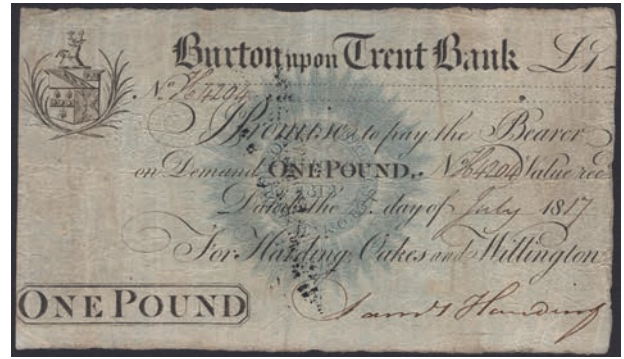 Burton upon Trent Bank £1
No. H4204
I Promise to pay the Bearer
on Demand ONE POUND, No. H4204 Value recd
Dated the day of July 1817
For Harding, Oakes and Willington
ONE POUND
Saml Harding